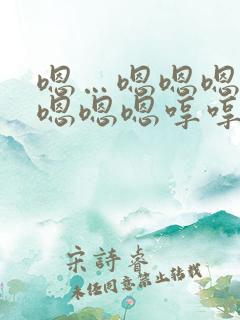 嗯…嗯嗯嗯
嗯嗯嗯哼哼
宋詩睿
未经同意禁止转载